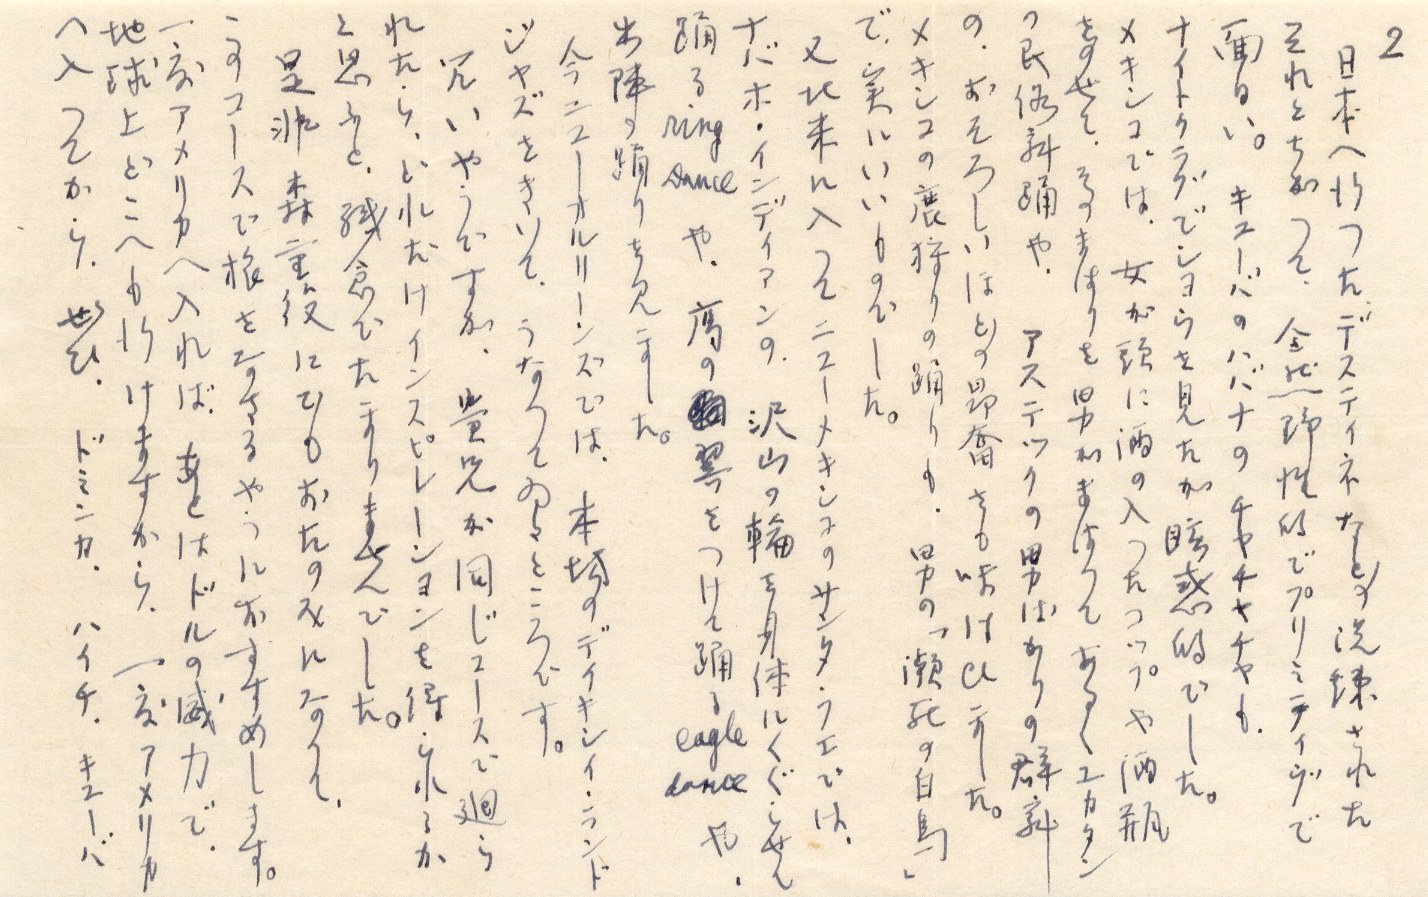 2
日本へ行つたデスティネなどの洗練された
それとちがつて、全然野性的でプリミティヴで
面白い。キューバのハバナのチャチャチャも、
ナイトクラブでショウを見たが眩惑的でした。
メキシコでは、女が頭に酒の入つたコップや酒瓶
をのせて、そのまはりを男がまはつてあるくユカタン
の民俗舞踊や、アステックの男ばかりの群舞
の、おそろしいほどの昂奮さも味はひました。
メキシコの鹿狩りの踊りも、男の「瀕死の白鳥」
で、実にいいものでした。
又北米に入つてニューメキシコのサンタ・フエでは、
ナバホ・インディアンの、沢山の輪を身体にくぐらせて
踊る ring dance や、鷹の翼をつけて踊る eagle dance や、
出陣の踊りを見ました。
今ニューオルリーンズでは、本場のデイキシイ・ランド
ジャズをきいて、うなつてゐるところです。
冗いやうですが、黛兄が同じコースで廻ら
れたら、どれだけインスピレーションを得られるか
と思ふと、残念でたまりませんでした。
是非森重役にひもおたのみになつて、
このコースで旅をなさるやうにおすすめします。
一度アメリカへ入れば、あとはドルの威力で、
地球上どこへも行けますから、一度アメリカ
へ入つてから、ぜひ、ドミニカ、ハイチ、キューバ